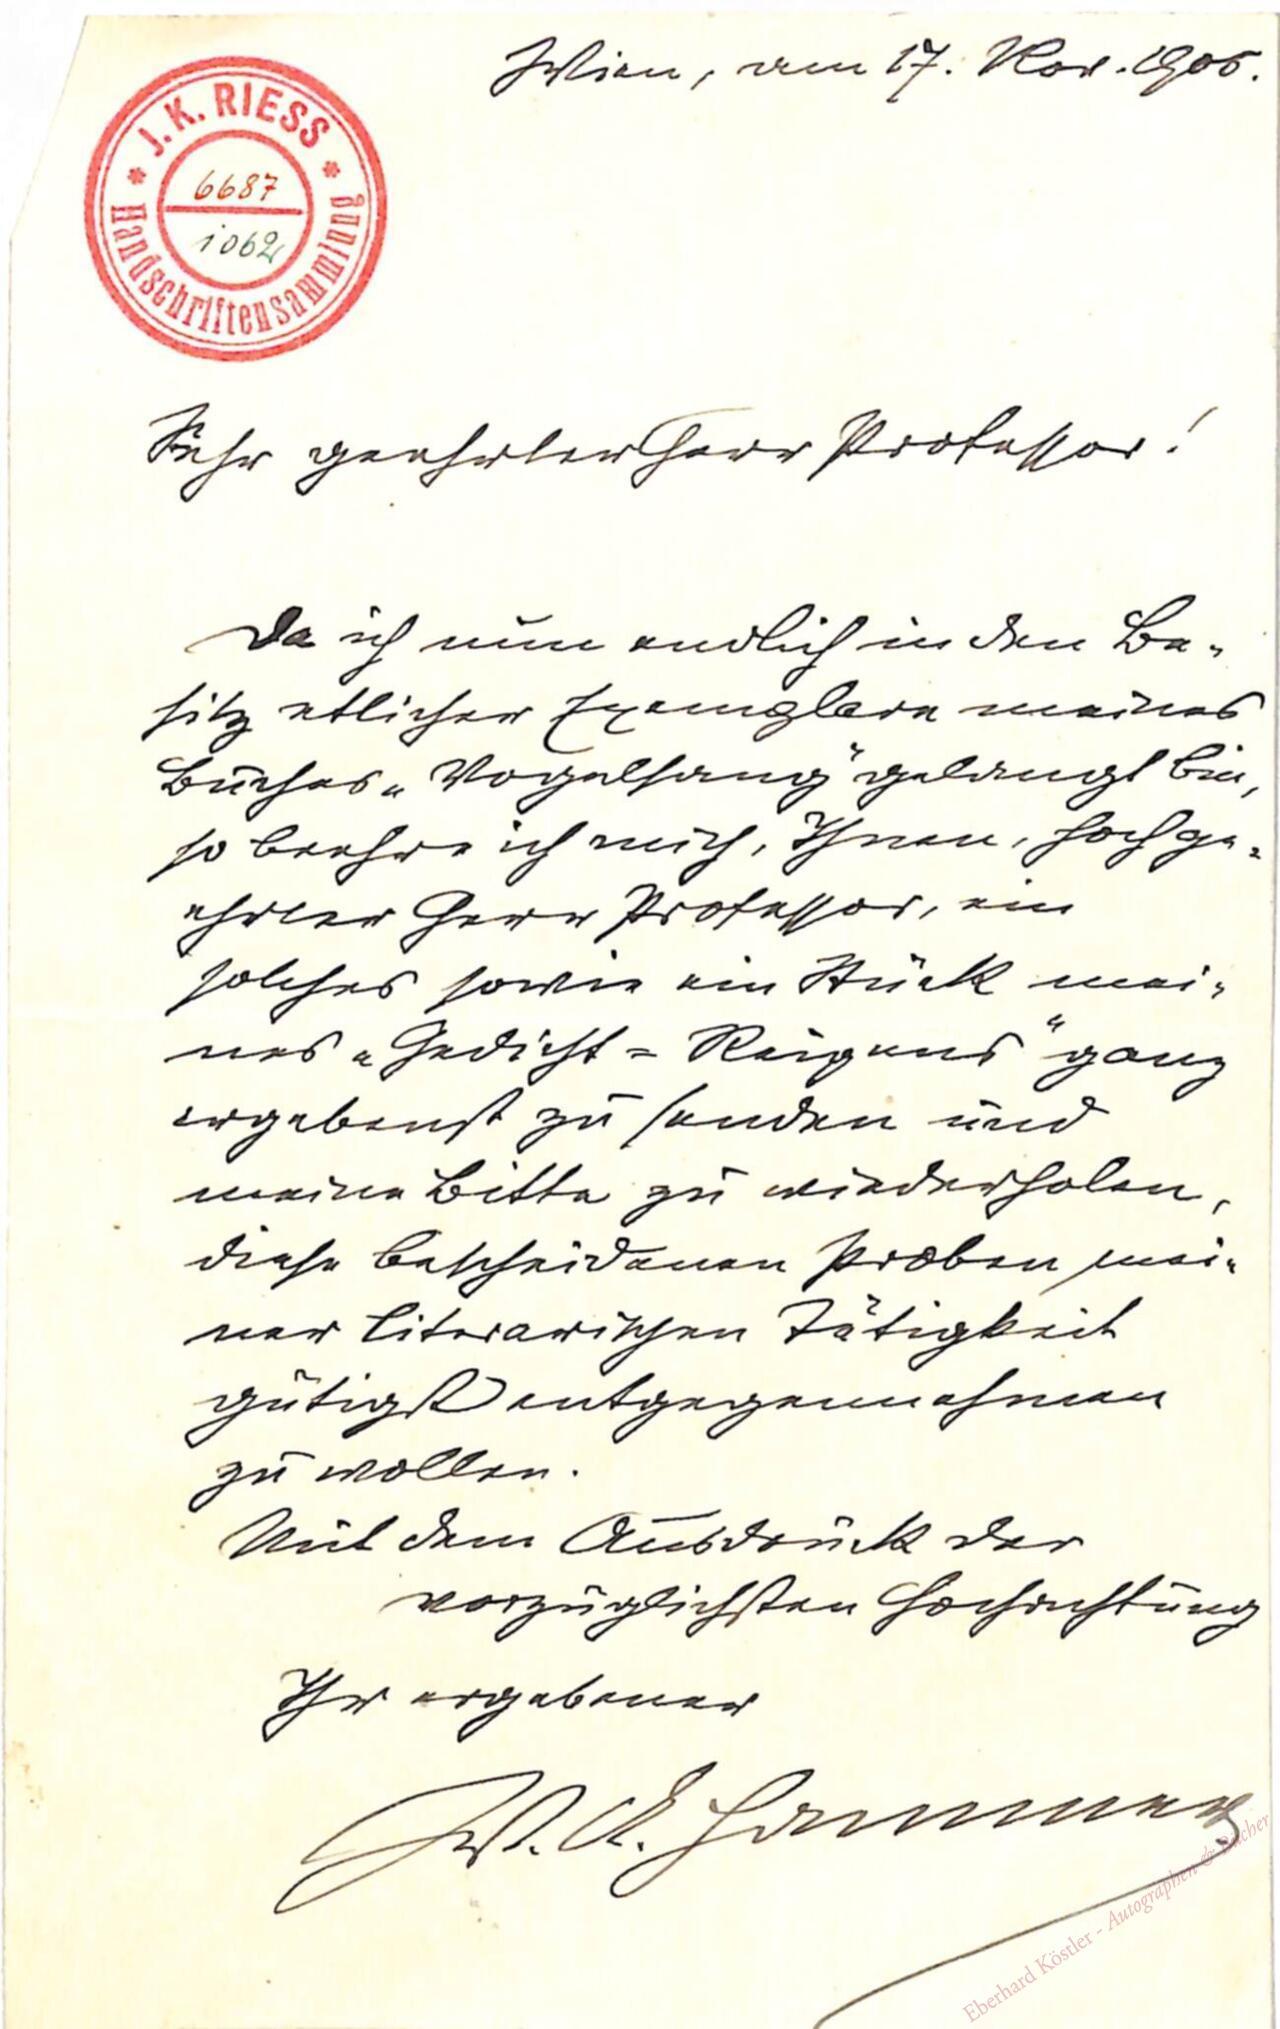 Wien, am 17. Nov. 1906.
J. K. RIESS
6687
1062
Handschriftensammlung
Sehr geehrter Herr Professor!
Da ich nun endlich in den Be-
sitz etlicher Exemplare meines
Buches „Vogelsang" gelangt bin,
so beehre ich mich, Ihnen, hochge-
ehrter Herr Professor, ein
solches sowie ein Stück mei-
nes „Gedicht-Reigens" ganz
ergebenst zu senden und
meine Bitte zu wiederholen,
diese bescheidenen Proben mei-
ner literarischen Tätigkeit
gütigst entgegennehmen
zu wollen.
Mit dem Ausdruck der
vorzüglichsten Hochachtung
Ihr ergebener
W. A. Hammer
Eberhard Köstler - Autographen & Bücher